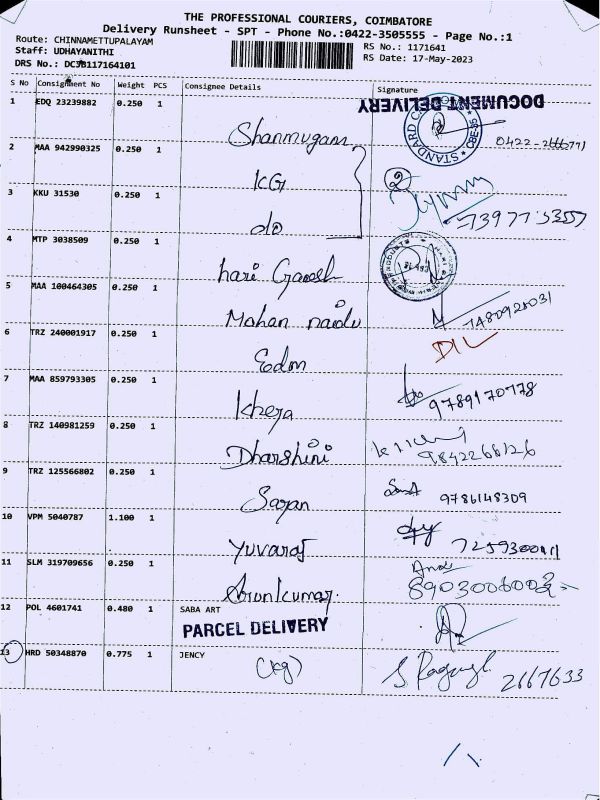 THE PROFESSIONAL COURIERS, COIMBATORE
Delivery Runsheet - SPT - Phone No.:0422-3505555 - Page No.:1
Route: CHINNAMETTUPALAYAM
RS No.: 1171641
Staff: UDHAYANITHI
RS Date: 17-May-2023
DRS No.: DCJB117164101
S No Consignment No Weight PCS Consignee Details Signature
DOCUMENT DELIVERY
1 EDQ 23239882 0.250 1 Shanmugam
STANDARD CBE-35
2 MAA 942990325 0.250 1 KG 2
3 KKU 31530 0.250 1 do
4 MTP 3038509 0.250 1 hari Ganesh
5 MAA 100464305 0.250 1 Mohan naidu
6 TRZ 240001917 0.250 1 Edm
7 MAA 859793305 0.250 1 9789170778
8 TRZ 140981259 0.250 1 Dharshini 9842266126
9 TRZ 125566802 0.250 1 9786148309
10 VPM 5040787 1.100 1 Yuvaraj
11 SLM 319709656 0.250 1 Arunkumar.
12 POL 4601741 0.480 1 SABA ART
PARCEL DELIVERY
13 HRD 50348870 0.775 1 JENCY (kg) 2667633